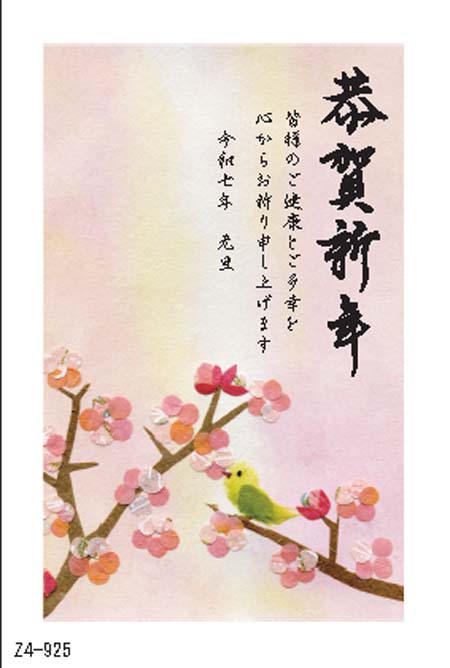 恭賀新年
皆様のご健康とご多幸を
心からお祈り申し上げます
令和七年　元旦
Z4-925